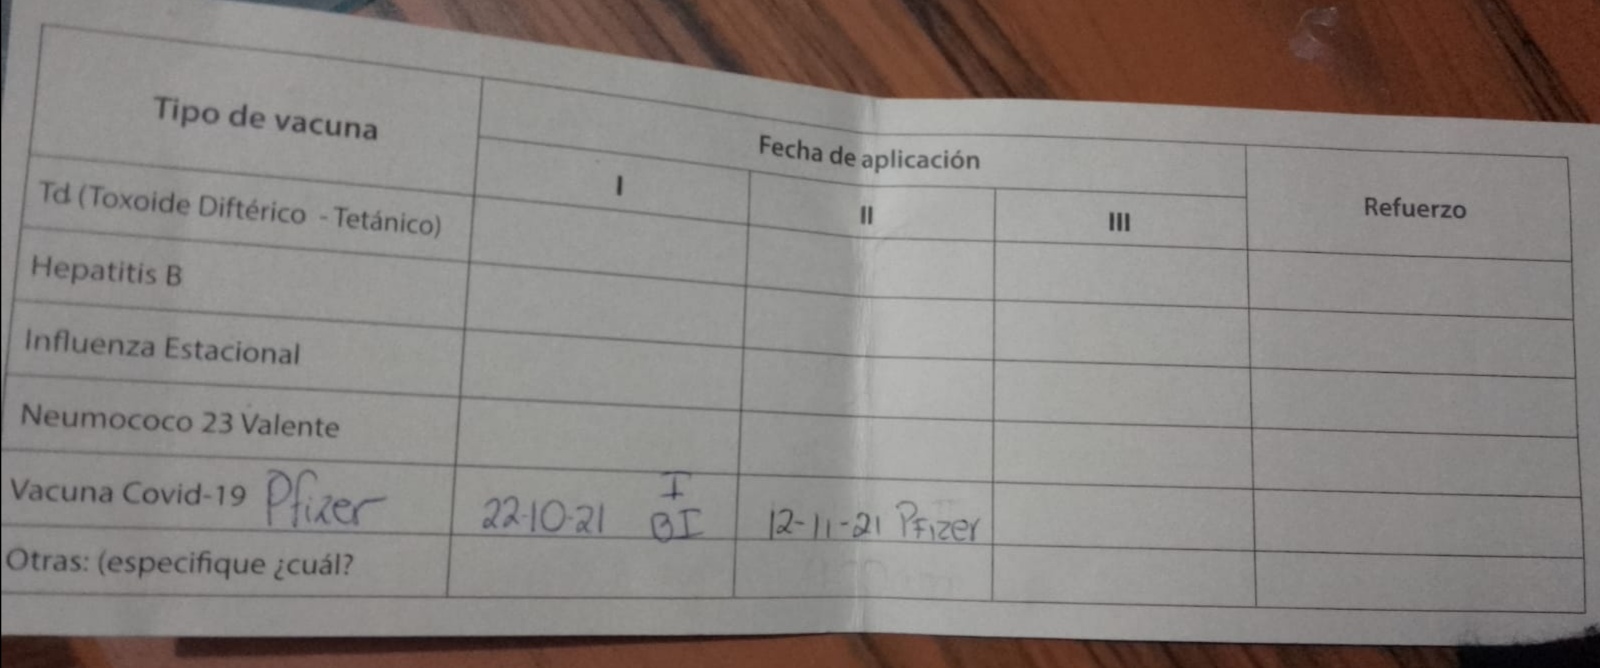 Tipo de vacuna
Fecha de aplicación
I
II
III
Refuerzo
Td (Toxoide Diftérico - Tetánico)
Hepatitis B
Influenza Estacional
Neumococo 23 Valente
Vacuna Covid-19 Pfizer
22-10-21
I
BI
12-11-21 Pfizer
Otras: (especifique ¿cuál?